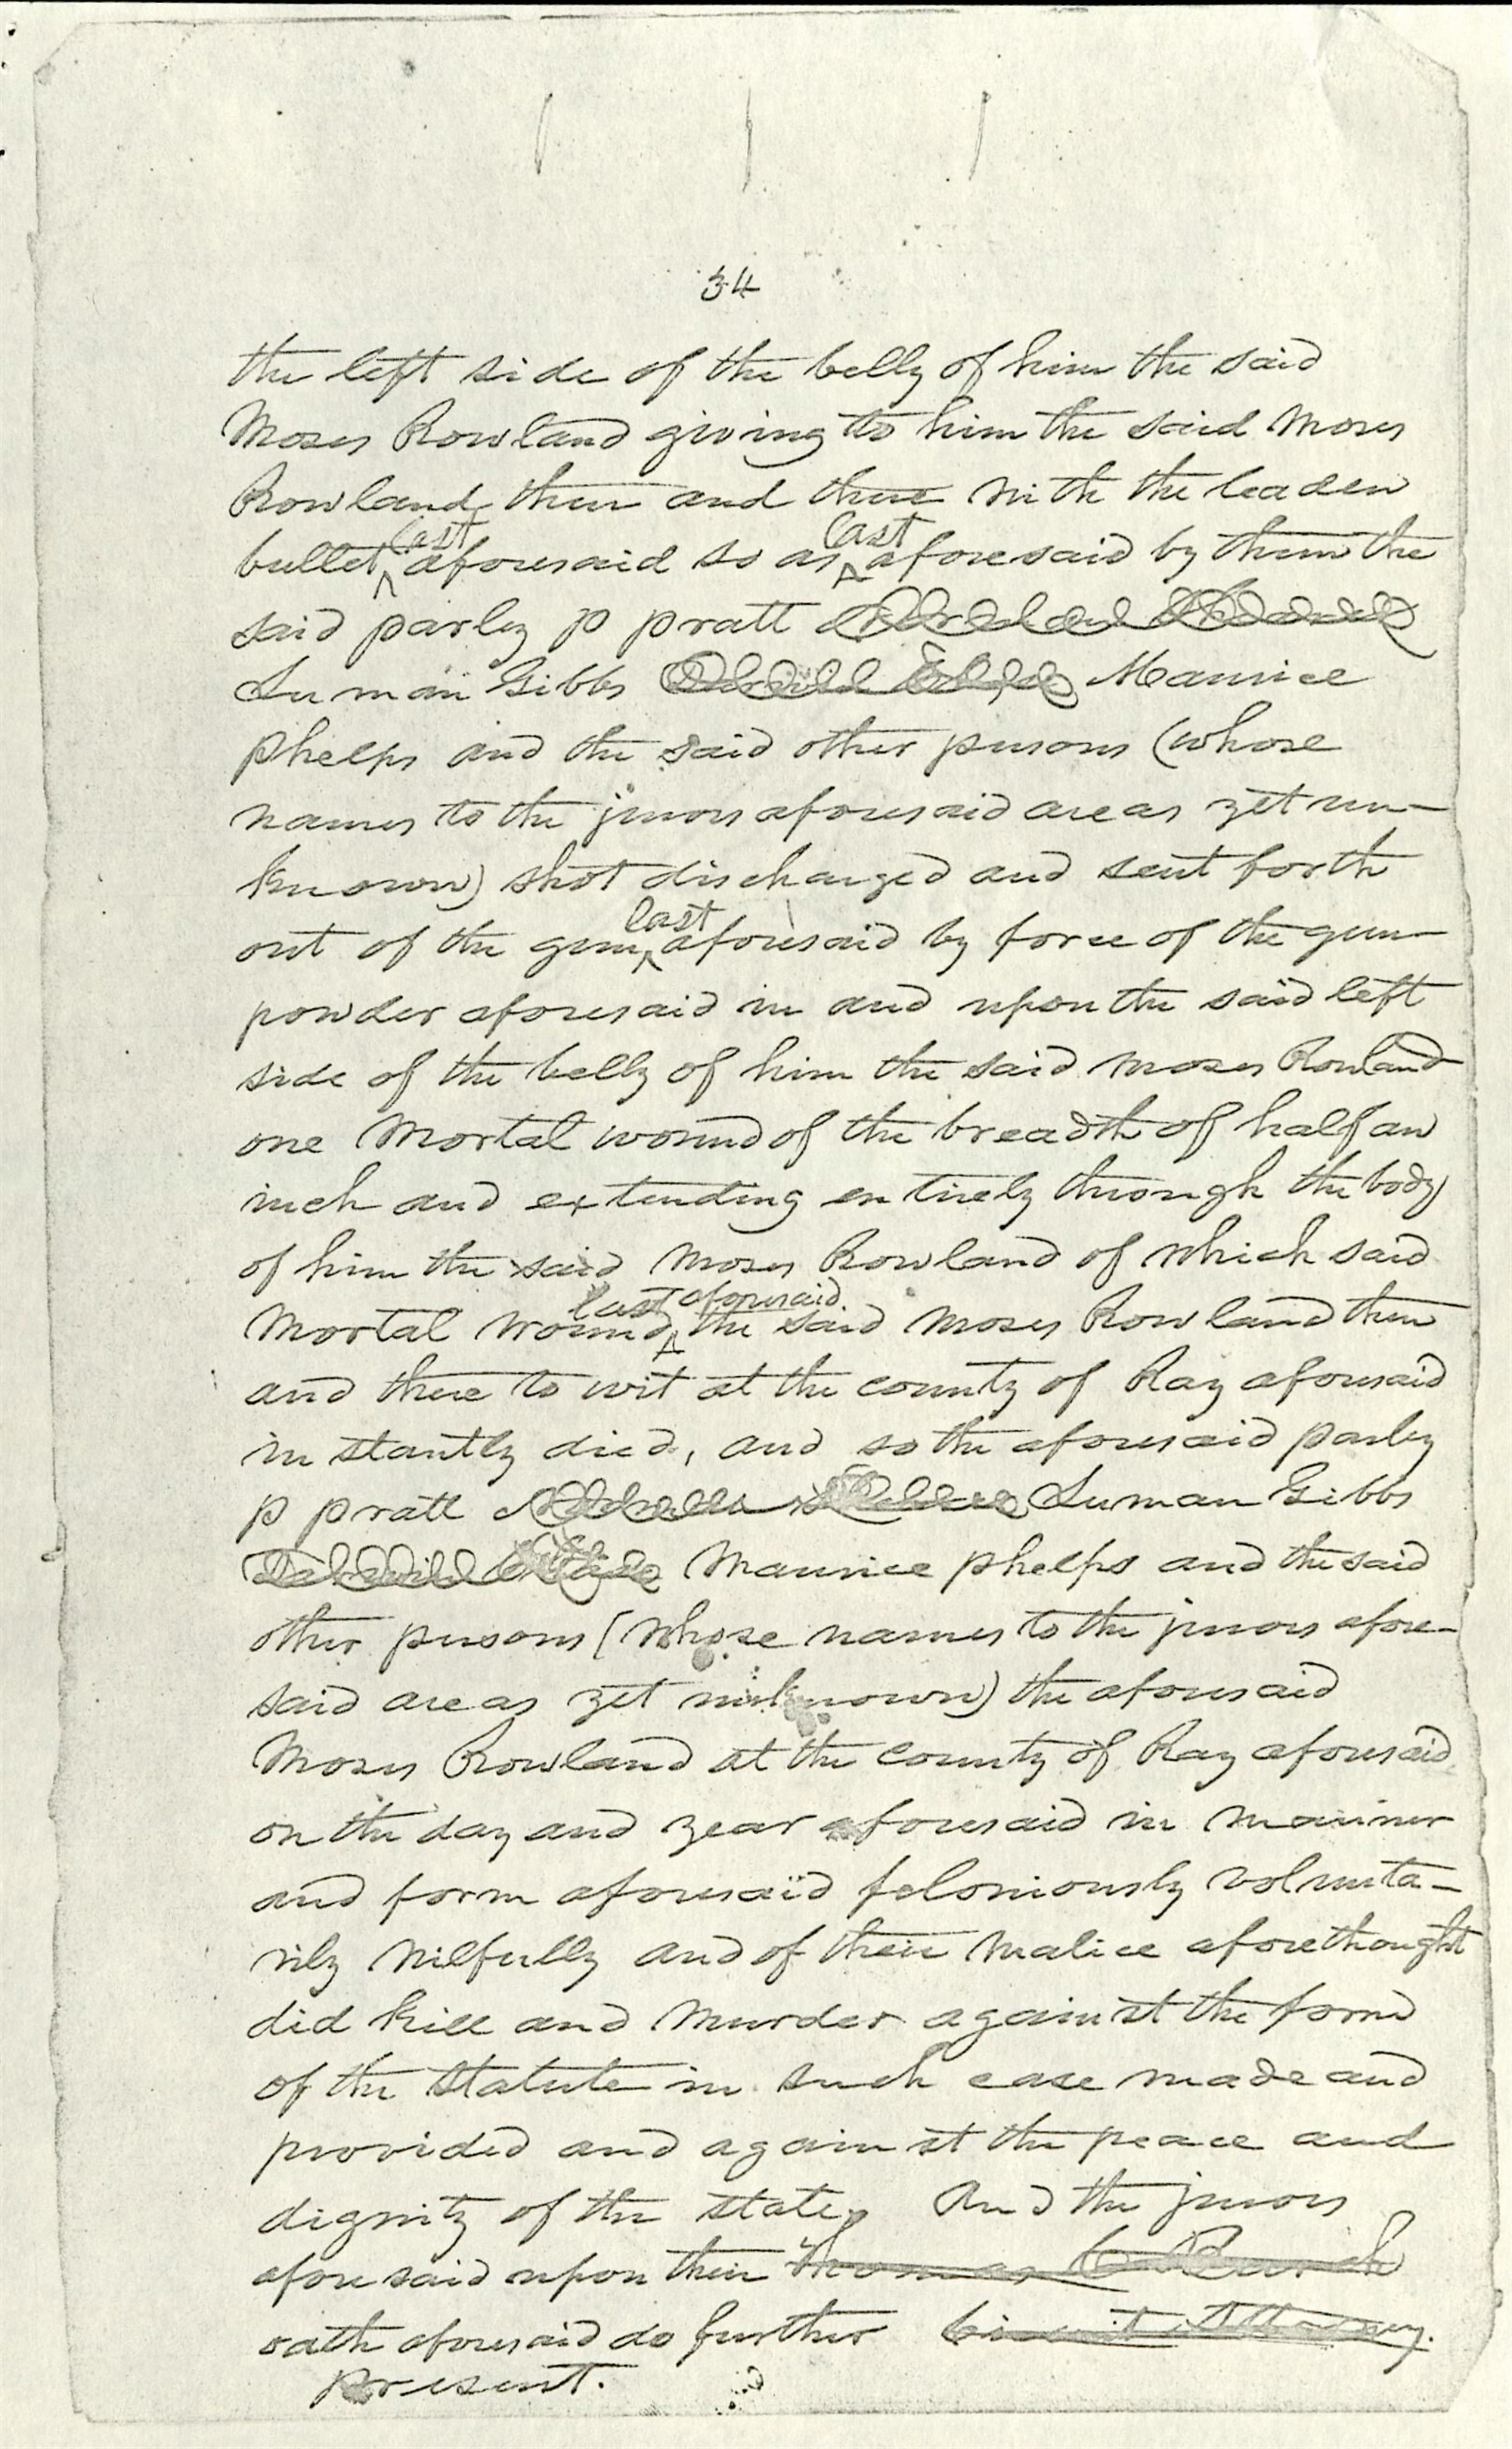 34
the left side of the belly of him the said
Moses Rowland giving to him the said Moses
Rowland then and there with the leaden
bullet last aforesaid so as last aforesaid by them the
said parley p pratt
Luman Gibbs Maurice
phelps and the said other persons (whose
names to the jurors aforesaid are as yet un-
known) shot discharged and sent forth
out of the gun last aforesaid by force of the gun-
powder aforesaid in and upon the said left
side of the belly of him the said Moses Rowland
one Mortal wound of the breadth of half an
inch and extending entirely through the body
of him the said Moses Rowland of which said
Mortal wound last aforesaid the said Moses Rowland then
and there to wit at the county of Ray aforesaid
instantly died, and so the aforesaid parley
p pratt Luman Gibbs
Maurice phelps and the said
other persons (whose names to the jurors afore-
said are as yet unknown) the aforesaid
Moses Rowland at the County of Ray aforesaid
on the day and year aforesaid in manner
and form aforesaid feloniously volunta-
rily wilfully and of their malice aforethought
did kill and Murder against the form
of the statute in such case made and
provided and against the peace and
dignity of the state, And the jurors
aforesaid upon their Thomas C Burch
oath aforesaid do further Circuit Attorney.
present.